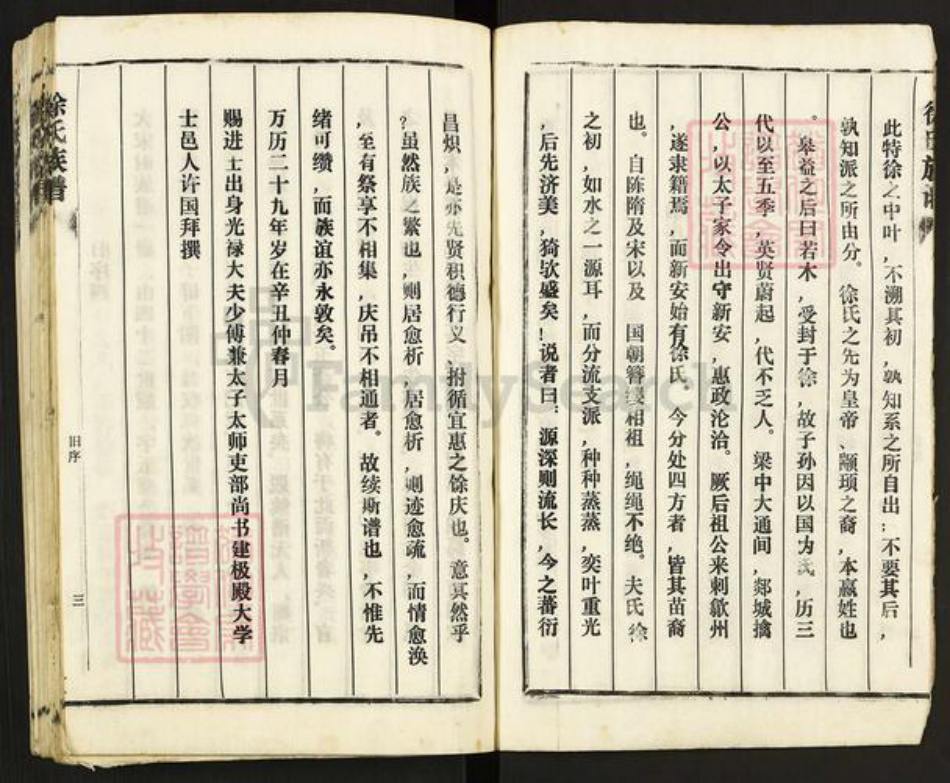 此特徐之中叶，不溯其初，孰知系之所自出；不要其后，
孰知派之所由分。 徐氏之先为皇帝、颛顼之裔，本嬴姓也
。皋益之后曰若木，受封于徐，故子孙因以国为氏，历三
代以至五季，英贤蔚起，代不乏人。梁中大通间，郯城擒
公，以太子家令出守新安，惠政沦洽。厥后祖公来刺歙州
，遂隶籍焉，而新安始有徐氏。今分处四方者，皆其苗裔
也。自陈隋及宋以及 国朝簪缨相祖，绳绳不绝。夫氏徐
之初，如水之一源耳，而分流支派，种种蒸蒸，奕叶重光
，后先济美，猗欤盛矣！说者曰：源深则流长，今之蕃衍
昌炽，是亦先贤积德行义，拊循宜惠之馀庆也。意其然乎
？虽然族之繁也，则居愈析，居愈析，则迹愈疏，而情愈涣
，至有祭享不相集，庆吊不相通者。故续斯谱也，不惟先
绪可缵，而族谊亦永敦矣。
万历二十九年岁在辛丑仲春月
赐进士出身光禄大夫少傅兼太子太师吏部尚书建极殿大学
士邑人许国拜撰
徐氏族谱
旧序
三
FamilySearch